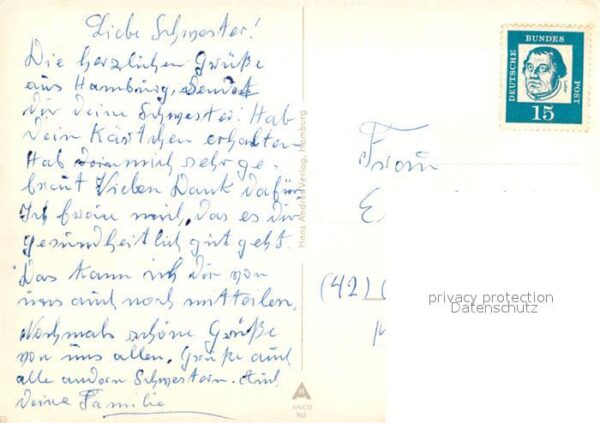 Liebe Schwester!
Die herzlichen Grüße
aus Hamburg, Sendet
dir deine Schwester. Hab
Dein Kästchen erhalten
Hab mich sehr ge-
freut Vielen Dank dafür
Ich freue mich, das es dir
gesundheitlich gut geht.
Das kann ich Dir von
uns auch noch mitteilen.
Nochmals schöne Grüße
von uns allen. Grüße auch
alle andern Schwestern. Auch
Deine Familie
Hans Andres Verlag, Hamburg
ANCO
DEUTSCHE BUNDES POST
Luther
15
Frau
E
(42) (
privacy protection
Datenschutz